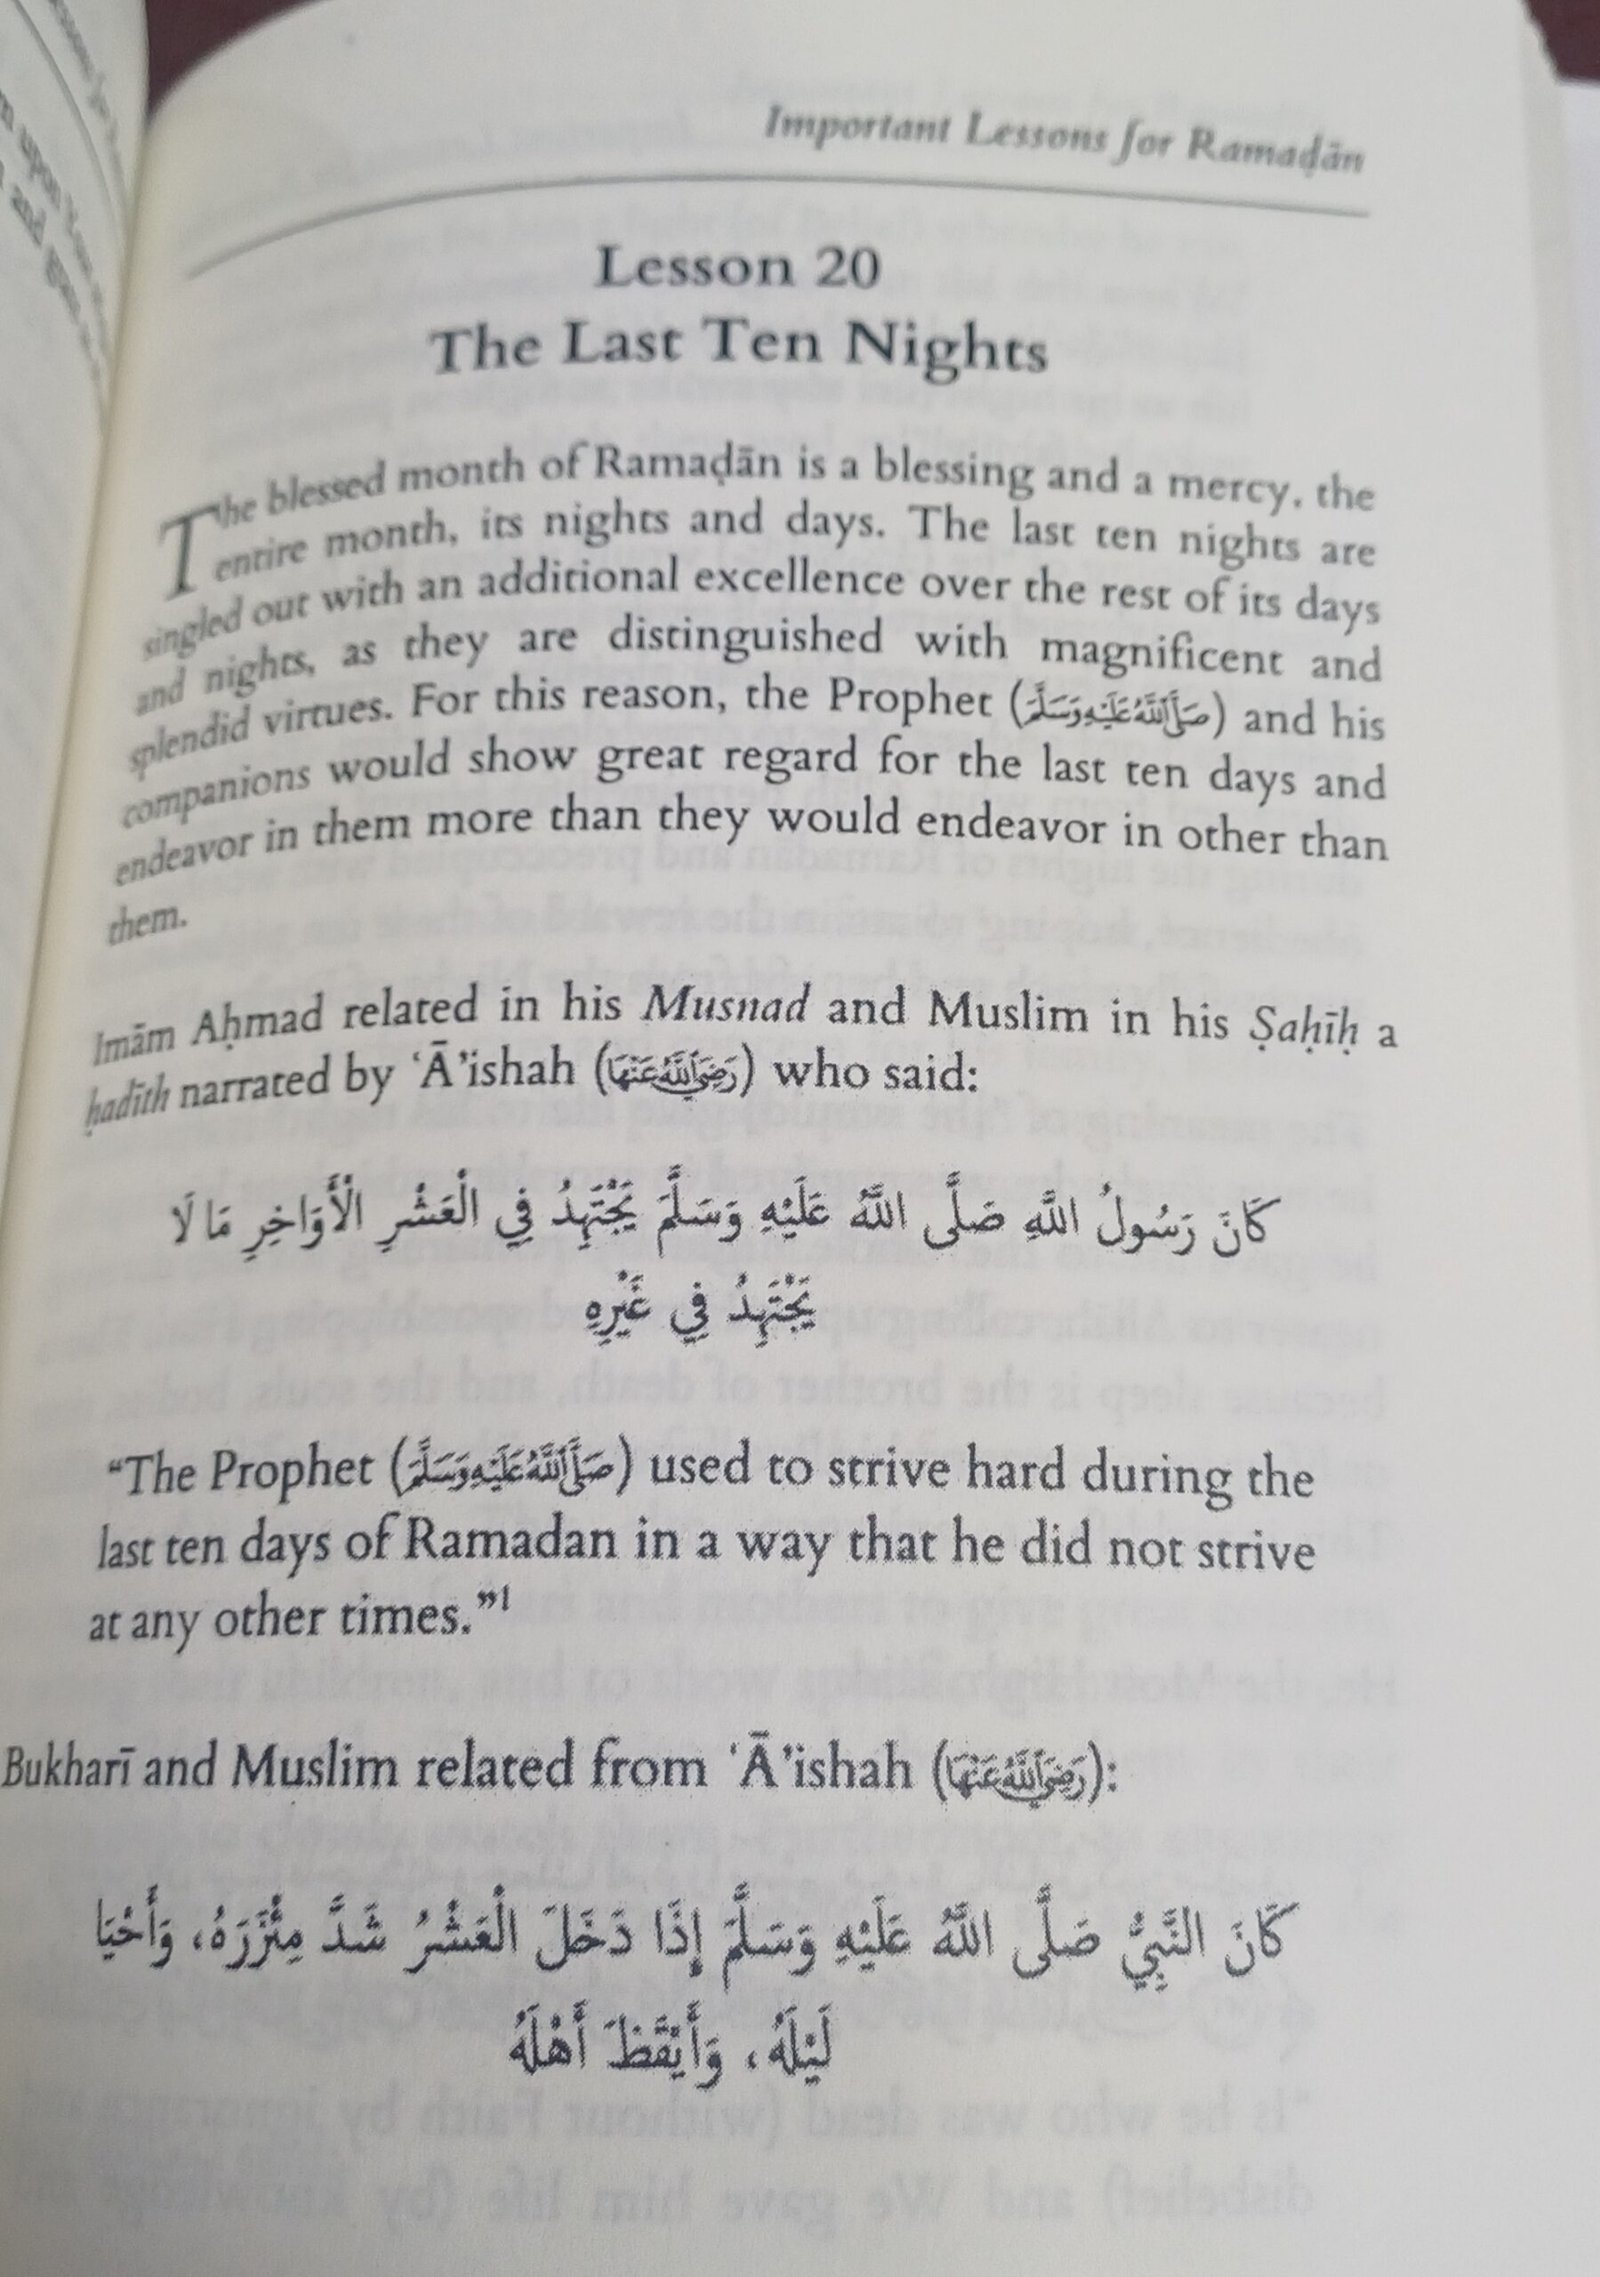 Important Lessons for Ramaḍān
Lesson 20
The Last Ten Nights
The blessed month of Ramaḍān is a blessing and a mercy, the
entire month, its nights and days. The last ten nights are
singled out with an additional excellence over the rest of its days
and nights, as they are distinguished with magnificent and
splendid virtues. For this reason, the Prophet (صَلَّى اللَّهُ عَلَيْهِ وَسَلَّمَ) and his
companions would show great regard for the last ten days and
endeavor in them more than they would endeavor in other than
them.
Imām Aḥmad related in his Musnad and Muslim in his Ṣaḥīḥ a
ḥadīth narrated by ‘Ā’ishah (رَضِيَ اللَّهُ عَنْهَا) who said:
كَانَ رَسُولُ اللَّهِ صَلَّى اللَّهُ عَلَيْهِ وَسَلَّمَ يَجْتَهِدُ فِي الْعَشْرِ الْأَوَاخِرِ مَا لَا
يَجْتَهِدُ فِي غَيْرِهِ
“The Prophet (صَلَّى اللَّهُ عَلَيْهِ وَسَلَّمَ) used to strive hard during the
last ten days of Ramadan in a way that he did not strive
at any other times.”1
Bukharī and Muslim related from ‘Ā’ishah (رَضِيَ اللَّهُ عَنْهَا):
كَانَ النَّبِيُّ صَلَّى اللَّهُ عَلَيْهِ وَسَلَّمَ إِذَا دَخَلَ الْعَشْرُ شَدَّ مِئْزَرَهُ، وَأَحْيَا
لَيْلَهُ، وَأَيْقَظَ أَهْلَهُ